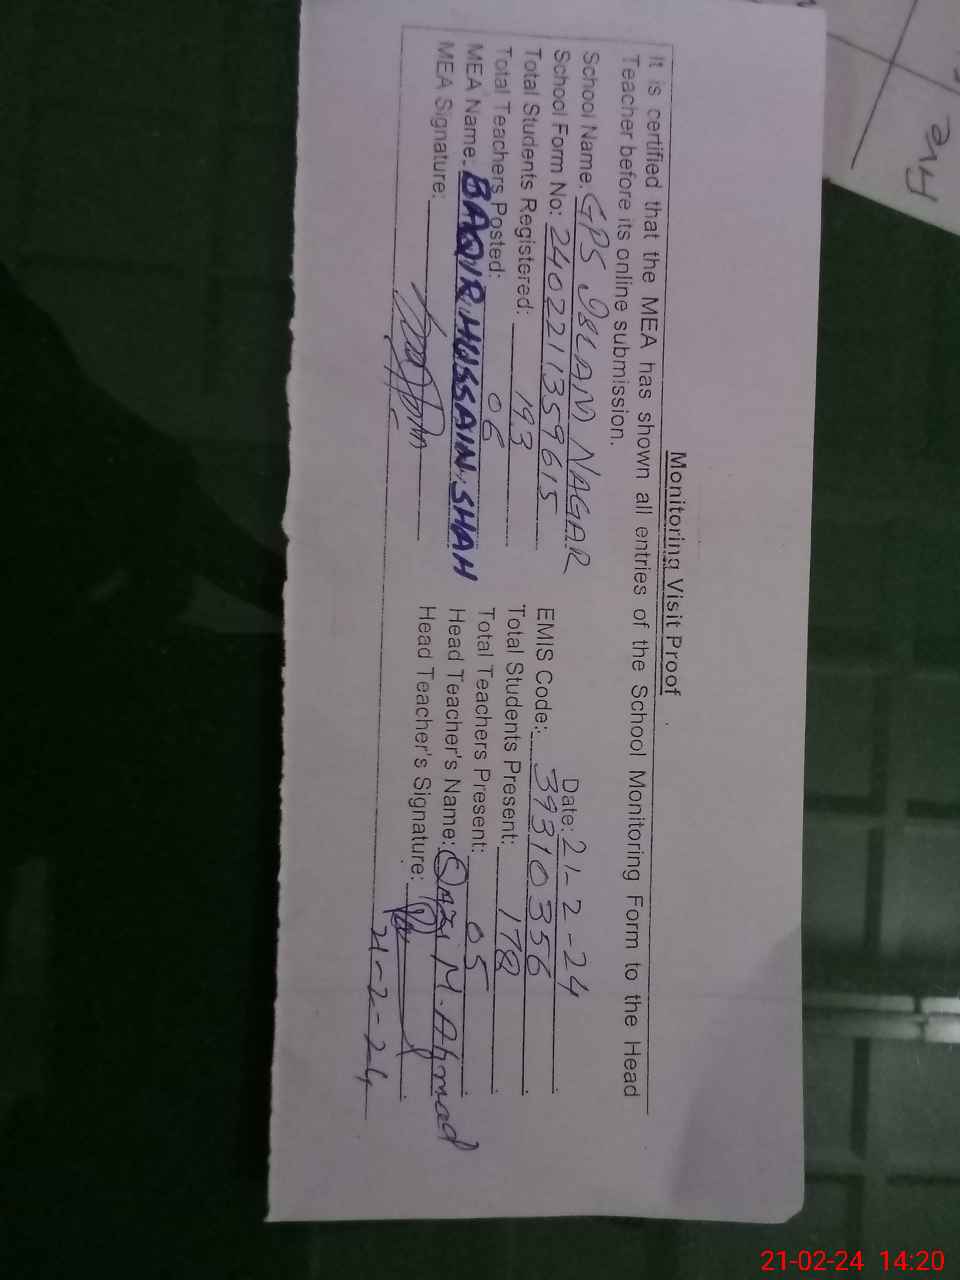 Monitoring Visit Proof
It is certified that the MEA has shown all entries of the School Monitoring Form to the Head
Teacher before its online submission.
Date: 21-2-24
School Name: GPS ISLAM NAGAR
EMIS Code: 39310356
School Form No: 2402211359615
Total Students Present: 178
Total Students Registered: 193
Total Teachers Present: 05
Total Teachers Posted: 06
Head Teacher's Name: Qazi M. Ahmad
MEA Name: BAQIR HUSSAIN SHAH
Head Teacher's Signature:
MEA Signature:
21-2-24
21-02-24 14:20